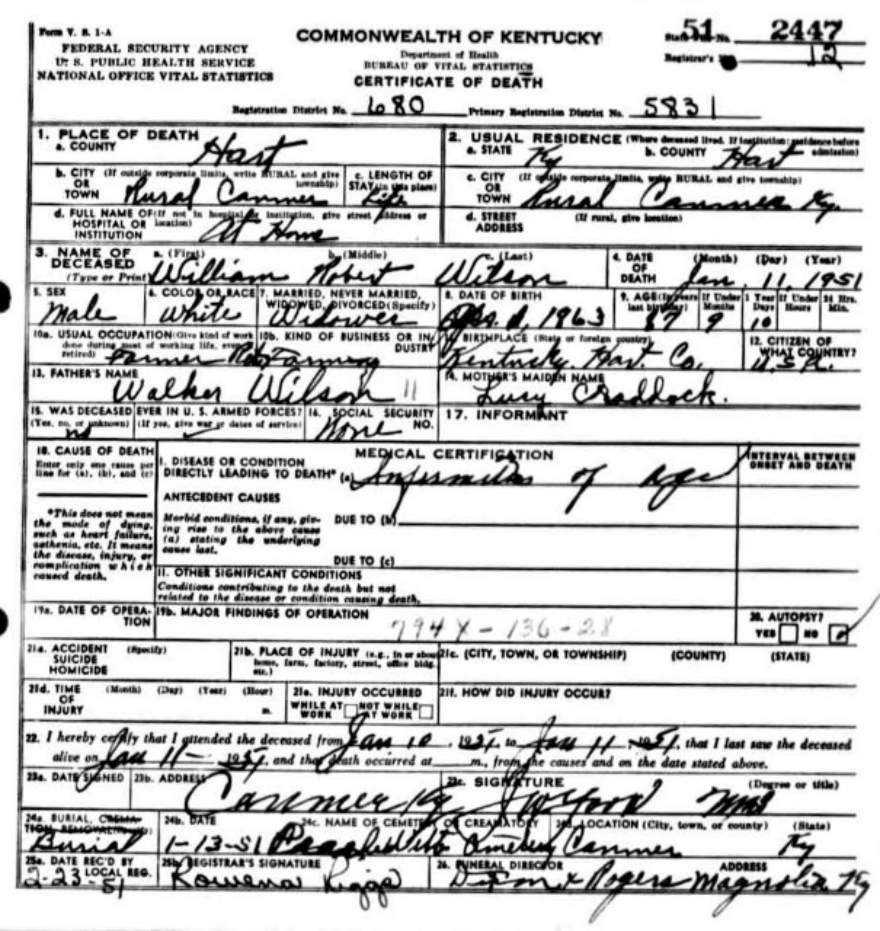 Form V. S. 1-A
FEDERAL SECURITY AGENCY
U. S. PUBLIC HEALTH SERVICE
NATIONAL OFFICE VITAL STATISTICS
COMMONWEALTH OF KENTUCKY
Department of Health
BUREAU OF VITAL STATISTICS
CERTIFICATE OF DEATH
51 2447
Registrar's No. 12
Registration District No. 680 Primary Registration District No. 5831
1. PLACE OF DEATH
a. COUNTY Hart
2. USUAL RESIDENCE (Where deceased lived. If institution: residence before admission)
a. STATE Ky b. COUNTY Hart
b. CITY (If outside corporate limits, write RURAL and give township)
OR TOWN Rural Canmer
c. LENGTH OF STAY (in this place) Life
c. CITY (If outside corporate limits, write RURAL and give township)
OR TOWN Rural Canmer Ky.
d. FULL NAME OF (If not in hospital or institution, give street address or location)
HOSPITAL OR INSTITUTION At Home
d. STREET ADDRESS (If rural, give location)
3. NAME OF DECEASED (Type or Print)
a. (First) b. (Middle) c. (Last)
William Robert Wilson
4. DATE OF DEATH (Month) (Day) (Year)
Jan. 11, 1951
5. SEX Male
6. COLOR OR RACE White
7. MARRIED, NEVER MARRIED, WIDOWED, DIVORCED (Specify) Widower
8. DATE OF BIRTH 1963
9. AGE (In years last birthday) 87
If Under 1 Year Months 9 Days 10
If Under 24 Hrs. Hours Min.
10a. USUAL OCCUPATION (Give kind of work done during most of working life, even if retired) Farmer
10b. KIND OF BUSINESS OR INDUSTRY Farming
11. BIRTHPLACE (State or foreign country) Kentucky Hart Co.
12. CITIZEN OF WHAT COUNTRY? U.S.A.
13. FATHER'S NAME
Walker Wilson 11
14. MOTHER'S MAIDEN NAME
Lucy Craddock.
15. WAS DECEASED EVER IN U. S. ARMED FORCES?
(Yes, no, or unknown) (If yes, give war or dates of service)
no
16. SOCIAL SECURITY NO. None
17. INFORMANT
18. CAUSE OF DEATH
Enter only one cause per line for (a), (b), and (c)
*This does not mean the mode of dying, such as heart failure, asthenia, etc. It means the disease, injury, or complication which caused death.
MEDICAL CERTIFICATION
I. DISEASE OR CONDITION
DIRECTLY LEADING TO DEATH* (a) Infirmities of age
INTERVAL BETWEEN ONSET AND DEATH
ANTECEDENT CAUSES
Morbid conditions, if any, giving rise to the above cause (a) stating the underlying cause last.
DUE TO (b)
DUE TO (c)
II. OTHER SIGNIFICANT CONDITIONS
Conditions contributing to the death but not related to the disease or condition causing death.
19a. DATE OF OPERATION
19b. MAJOR FINDINGS OF OPERATION
794X-136-28
20. AUTOPSY?
YES NO
21a. ACCIDENT SUICIDE HOMICIDE (Specify)
21b. PLACE OF INJURY (e.g., in or about home, farm, factory, street, office bldg. etc.)
21c. (CITY, TOWN, OR TOWNSHIP) (COUNTY) (STATE)
21d. TIME OF INJURY (Month) (Day) (Year) (Hour) m.
21e. INJURY OCCURRED
WHILE AT WORK NOT WHILE AT WORK
21f. HOW DID INJURY OCCUR?
22. I hereby certify that I attended the deceased from Jan 10, 1951, to Jan 11, 1951, that I last saw the deceased
alive on Jan 11-1951, and that death occurred at m., from the causes and on the date stated above.
23a. DATE SIGNED
23b. ADDRESS Canmer Ky
23c. SIGNATURE (Degree or title)
24a. BURIAL, CREMATION, REMOVAL Burial
24b. DATE 1-13-51
24c. NAME OF CEMETERY OR CREAMATORY
24d. LOCATION (City, town, or county) (State)
Canmer Ky
25a. DATE REC'D BY LOCAL REG. 2-23-51
25b. REGISTRAR'S SIGNATURE Rowena Riggs
26. FUNERAL DIRECTOR ADDRESS
Dixon & Rogers Magnolia, Ky